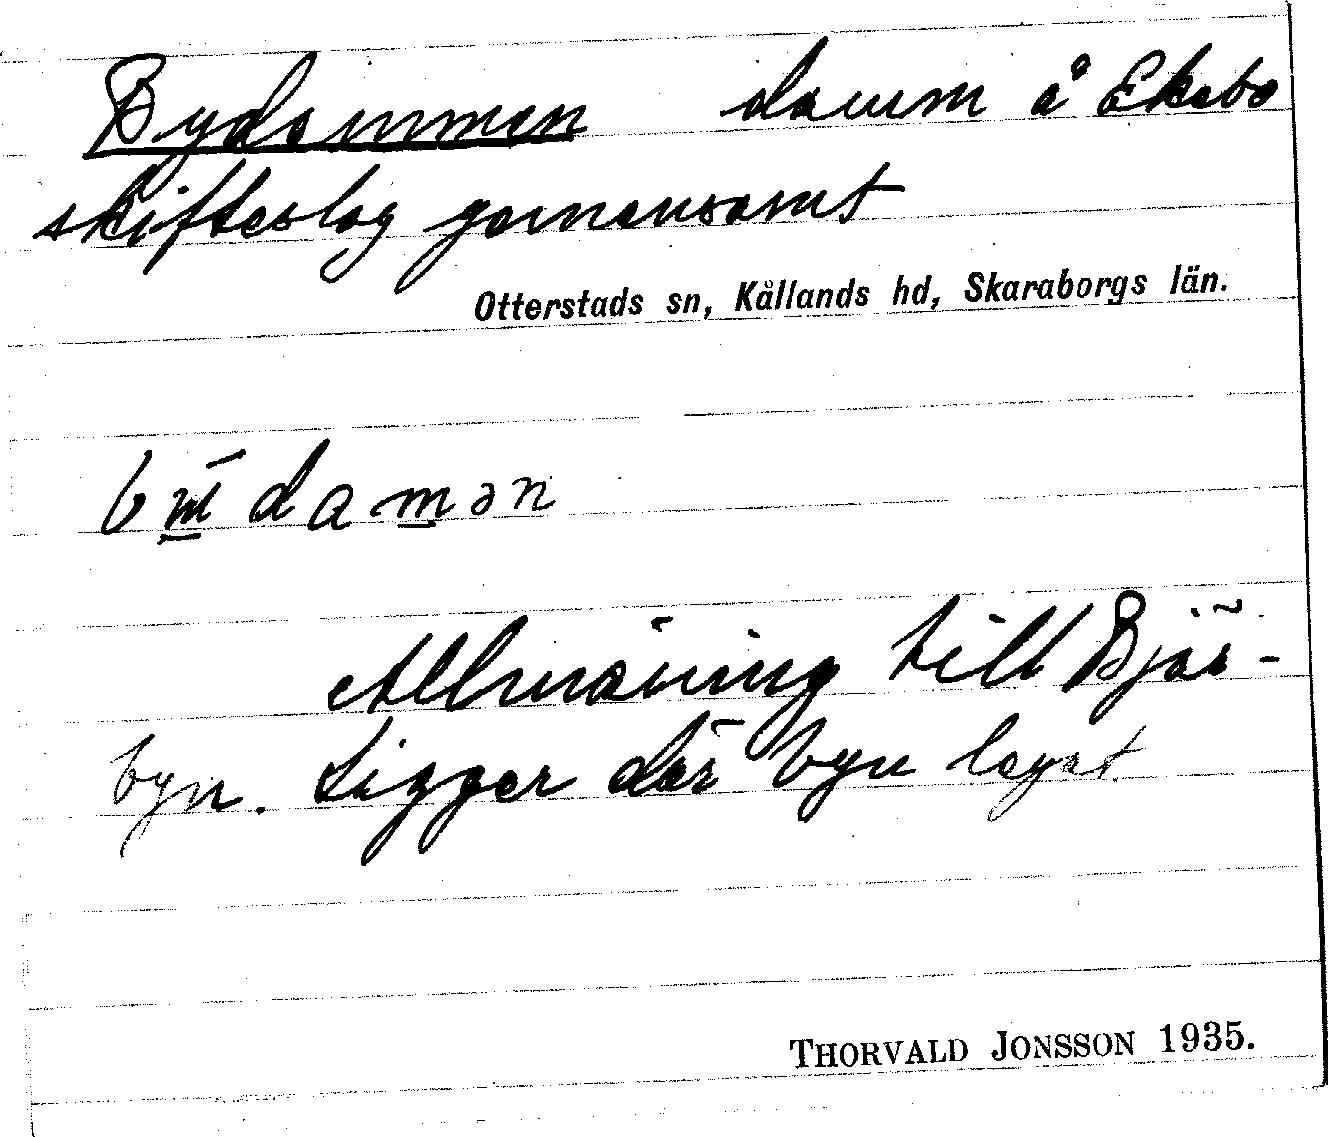 Bydammen damm å Ekebo
skifteslag gemensamt
Otterstads sn, Kållands hd, Skaraborgs län.
damən
Allmänning till Bjär-
byn. Ligger där byn legat
THORVALD JONSSON 1935.